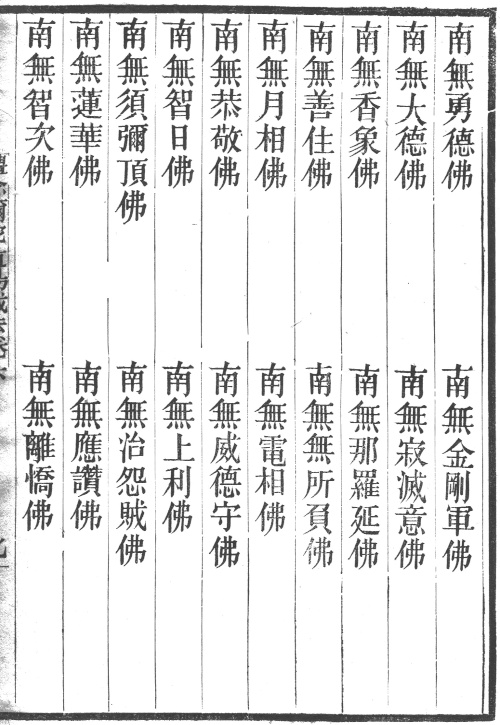 南無勇德佛　南無金剛軍佛
南無大德佛　南無寂滅意佛
南無香象佛　南無那羅延佛
南無善住佛　南無無所負佛
南無月相佛　南無電相佛
南無恭敬佛　南無威德守佛
南無智日佛　南無上利佛
南無須彌頂佛　南無治怨賊佛
南無蓮華佛　南無應讚佛
南無智次佛　南無離憍佛